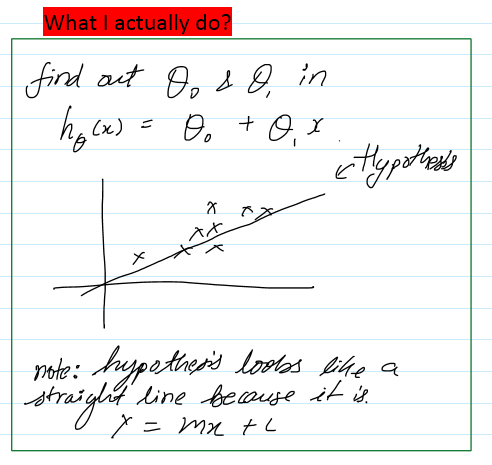 What I actually do?
find out θ₀ & θ₁ in
h_θ(x) = θ₀ + θ₁ x
Hypothesis
note: hypothesis looks like a
straight line because it is.
Y = mx + c